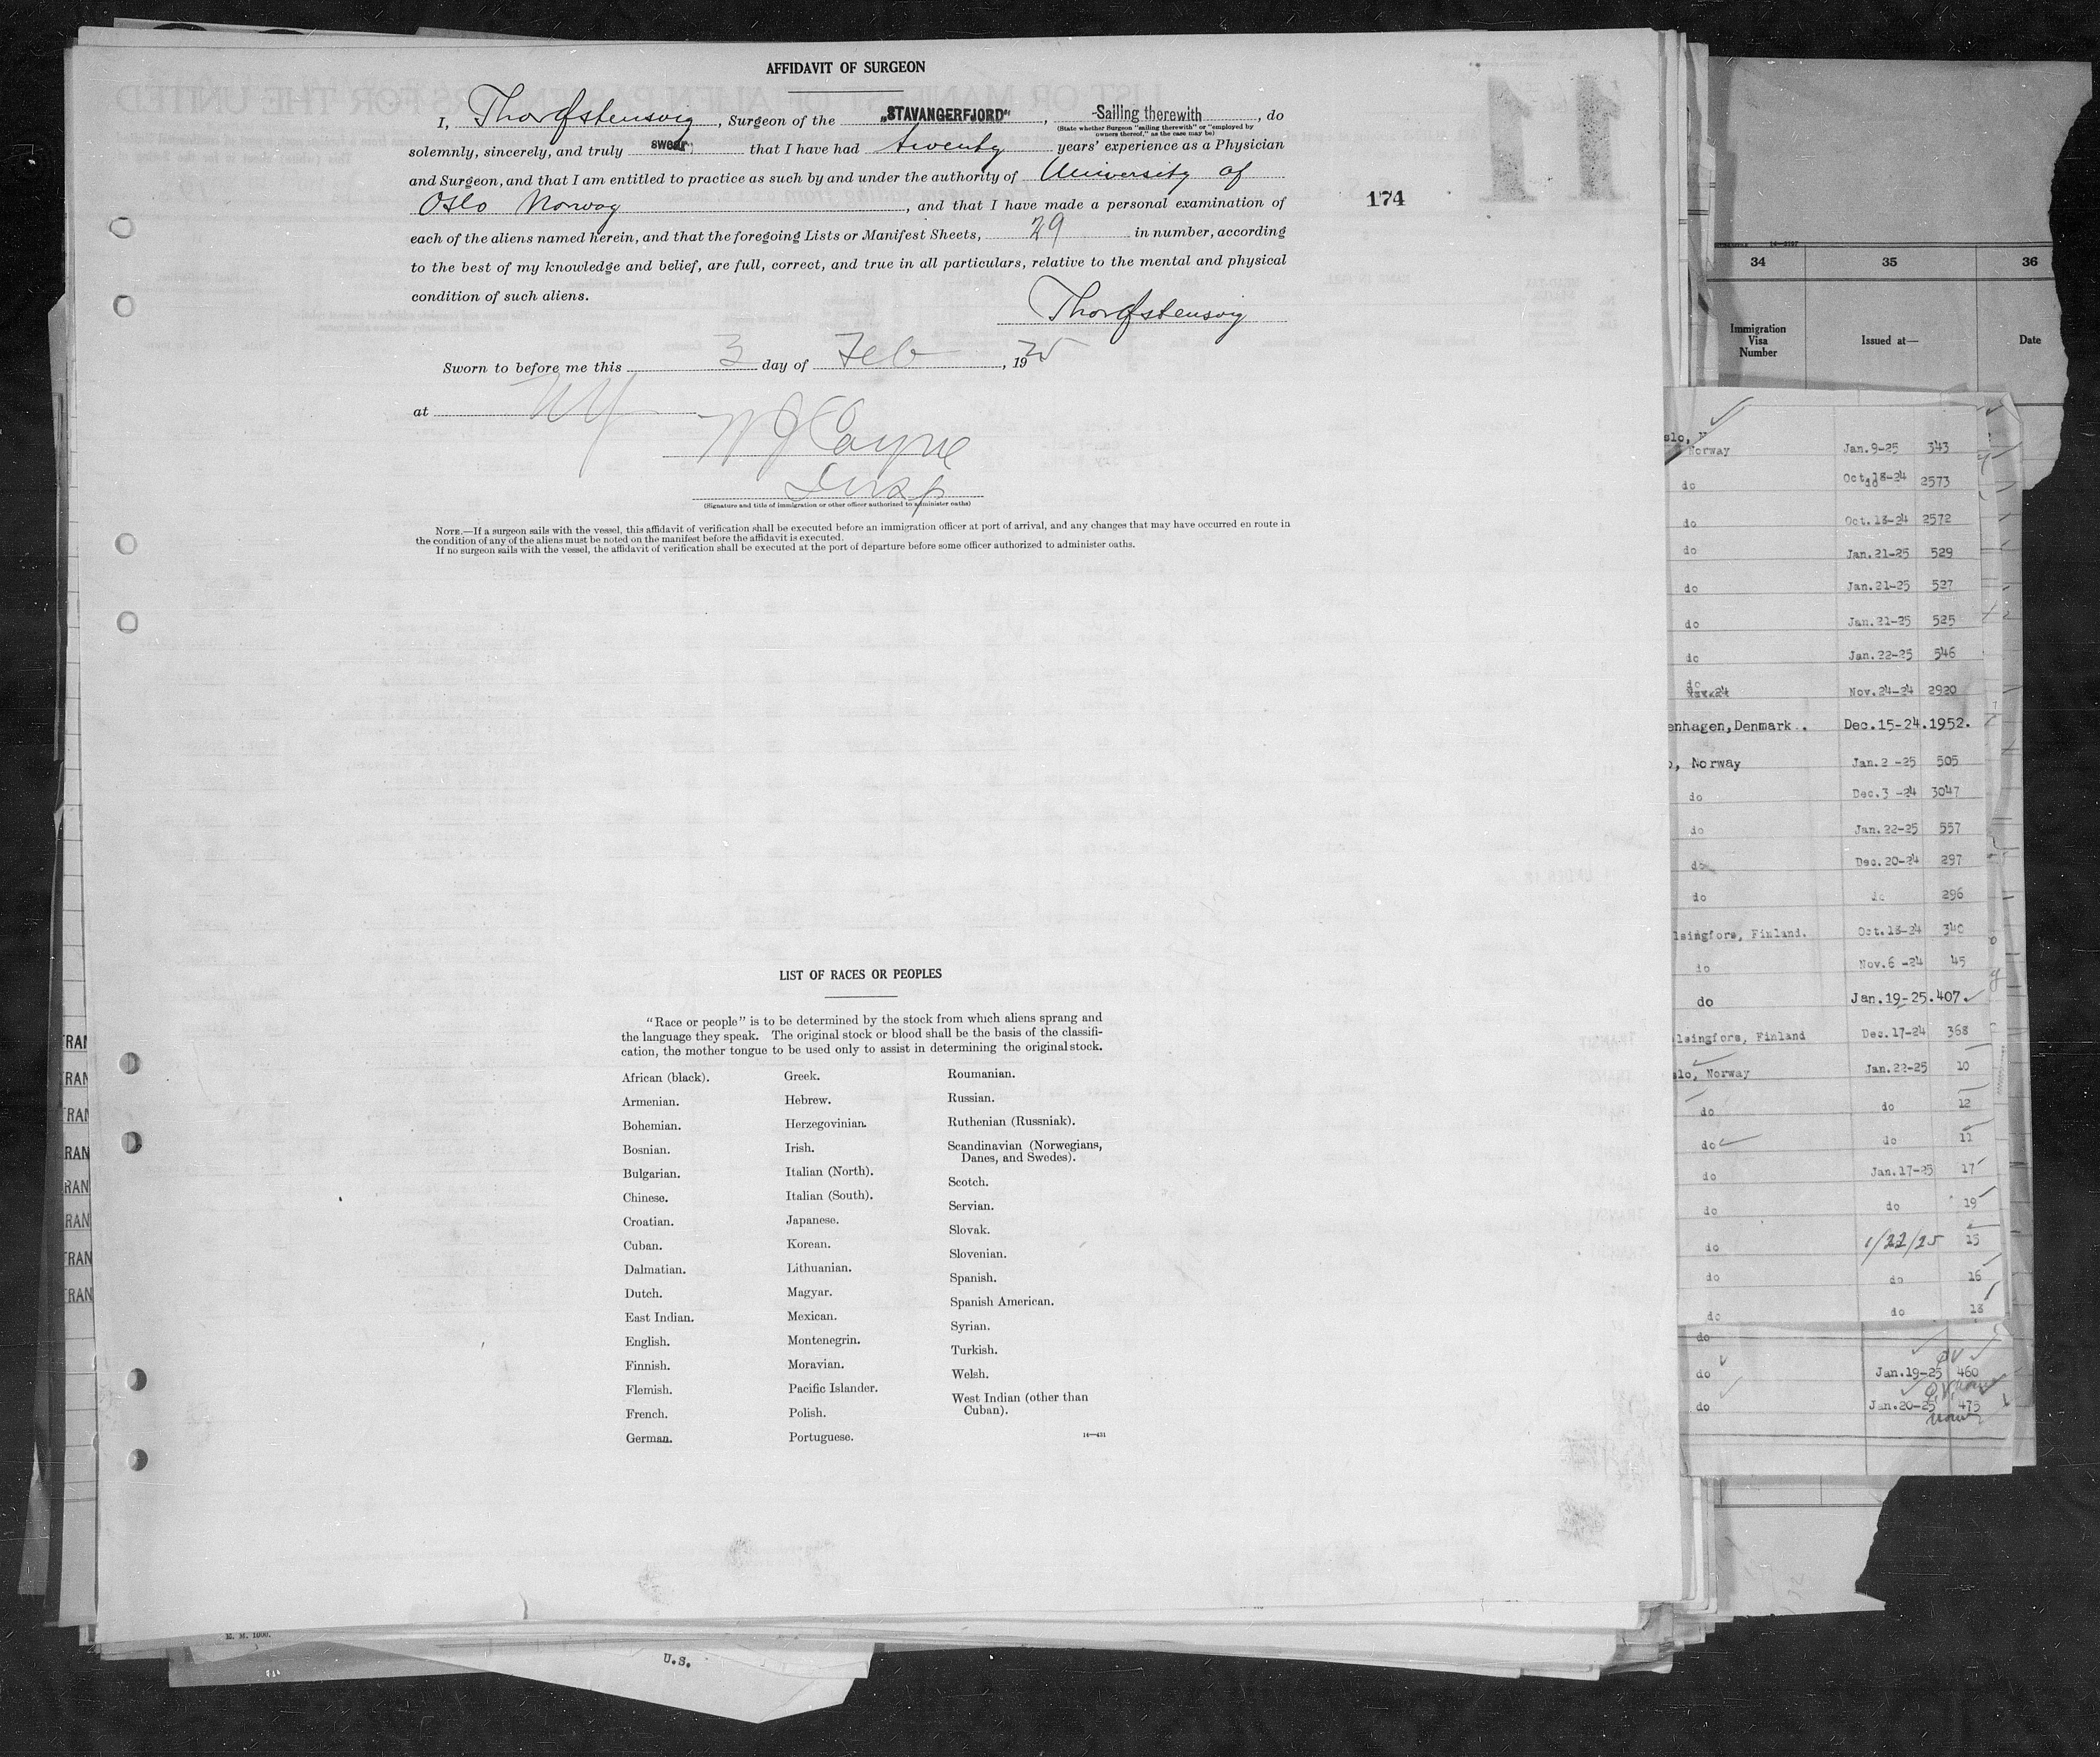 AFFIDAVIT OF SURGEON
I, Thor Stensvig, Surgeon of the „STAVANGERFJORD“, Sailing therewith, do
(State whether Surgeon "sailing therewith" or "employed by
owners thereof," as the case may be)
solemnly, sincerely, and truly swear that I have had twenty years' experience as a Physician
and Surgeon, and that I am entitled to practice as such by and under the authority of University of
Oslo Norway, and that I have made a personal examination of
174
each of the aliens named herein, and that the foregoing Lists or Manifest Sheets, 29 in number, according
to the best of my knowledge and belief, are full, correct, and true in all particulars, relative to the mental and physical
condition of such aliens.
Thor Stensvig
Sworn to before me this 3 day of Feb, 1925
at NY
W J Coyne
Insp
(Signature and title of immigration or other officer authorized to administer oaths)
NOTE.—If a surgeon sails with the vessel, this affidavit of verification shall be executed before an immigration officer at port of arrival, and any changes that may have occurred en route in
the condition of any of the aliens must be noted on the manifest before the affidavit is executed.
If no surgeon sails with the vessel, the affidavit of verification shall be executed at the port of departure before some officer authorized to administer oaths.
LIST OF RACES OR PEOPLES
"Race or people" is to be determined by the stock from which aliens sprang and
the language they speak. The original stock or blood shall be the basis of the classifi-
cation, the mother tongue to be used only to assist in determining the original stock.
African (black).
Armenian.
Bohemian.
Bosnian.
Bulgarian.
Chinese.
Croatian.
Cuban.
Dalmatian.
Dutch.
East Indian.
English.
Finnish.
Flemish.
French.
German.
Greek.
Hebrew.
Herzegovinian.
Irish.
Italian (North).
Italian (South).
Japanese.
Korean.
Lithuanian.
Magyar.
Mexican.
Montenegrin.
Moravian.
Pacific Islander.
Polish.
Portuguese.
Roumanian.
Russian.
Ruthenian (Russniak).
Scandinavian (Norwegians,
Danes, and Swedes).
Scotch.
Servian.
Slovak.
Slovenian.
Spanish.
Spanish American.
Syrian.
Turkish.
Welsh.
West Indian (other than
Cuban).
14—431
34 35 36
Immigration
Visa
Number
Issued at—
Date
slo, Norway Jan.9-25 343
do Oct.18-24 2573
do Oct.18-24 2572
do Jan.21-25 529
do Jan.21-25 527
do Jan.21-25 525
do Jan.22-25 546
do Nov.24-24 2920
enhagen, Denmark. Dec.15-24.1952.
o, Norway Jan.2 -25 505
do Dec.3 -24 3047
do Jan.22-25 557
do Dec.20-24 297
do do 296
lsingfors, Finland. Oct.18-24 340
do Nov.6 -24 45
do Jan.19-25.407
lsingfors, Finland Dec.17-24 368
slo, Norway Jan.22-25 10
do do 12
do do 11
do Jan.17-25 17
do do 19
do 1/22/25 15
do do 16
do do 18
do
do Jan.19-25 460
do Jan.20-25 475
E. M. 1000.
U.S.